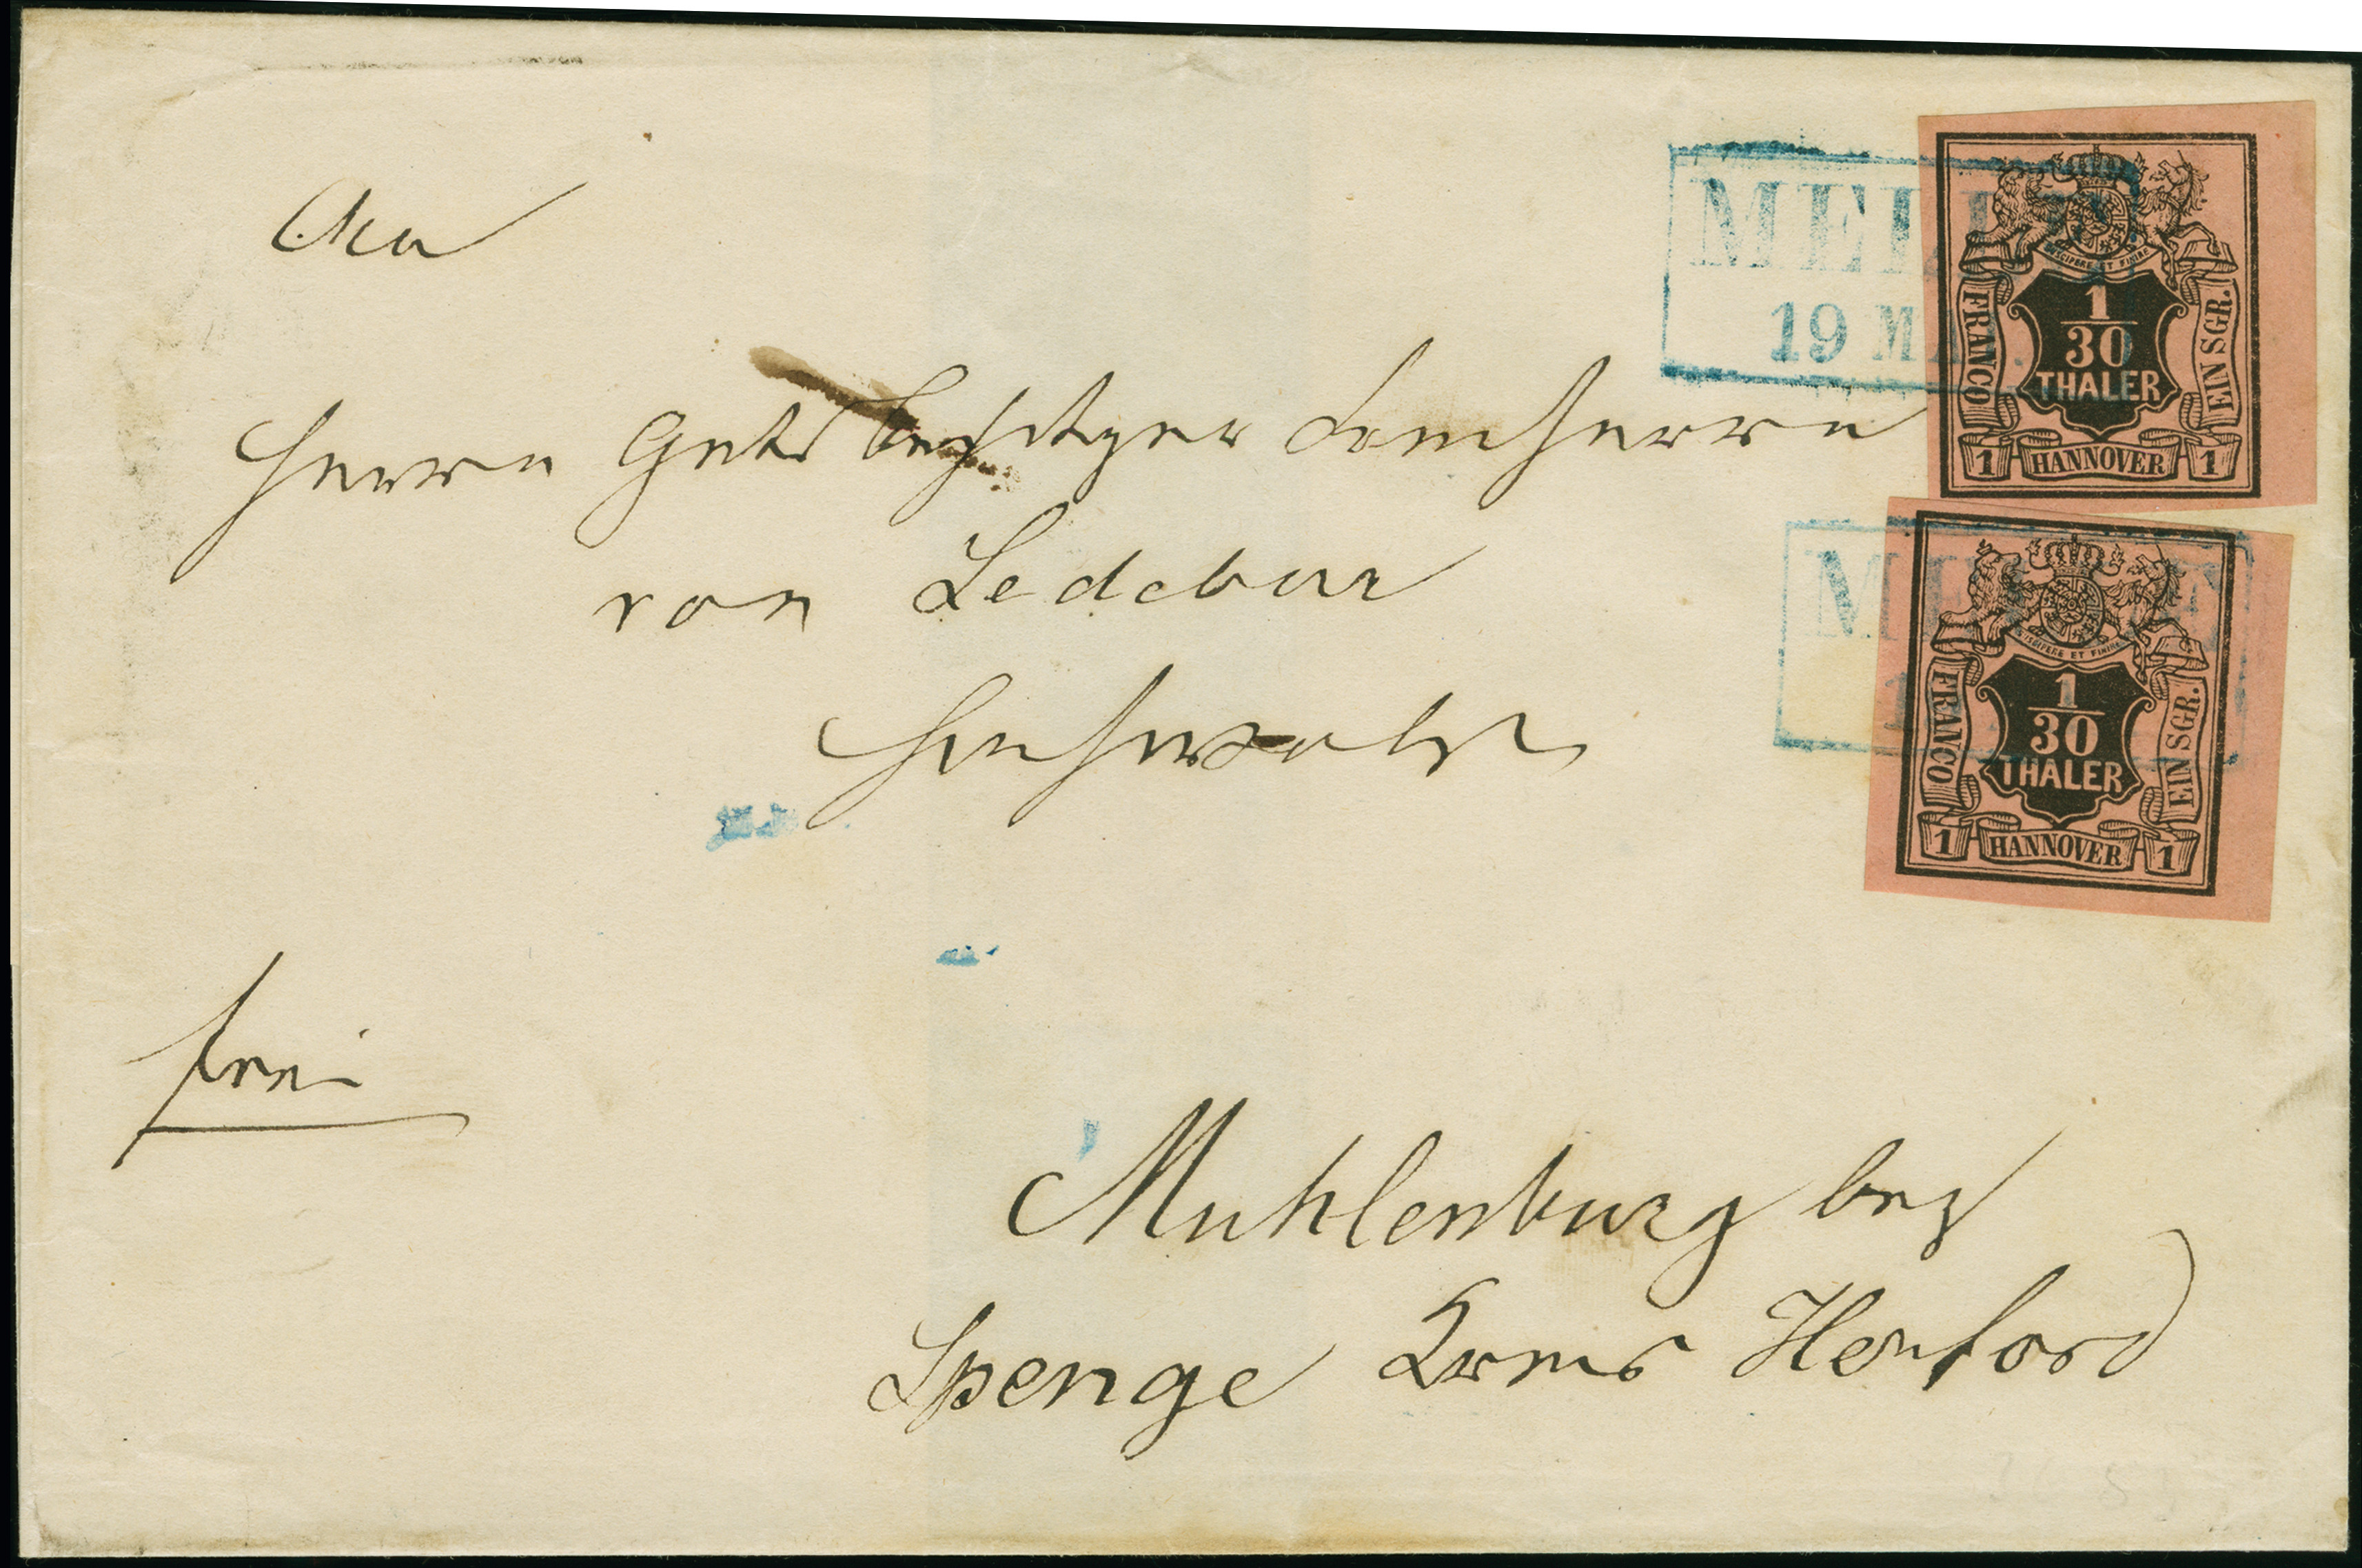 An
Herrn Gutsbesitzer Domherrn
von Ledebur
Hochwohlgb
frei
Muhlenburg bey
Spenge Kreis Herford
MEPPEN
19 MAI
SUSCIPERE ET FINIRE
FRANCO
1
30
THALER
EIN SGR.
1 HANNOVER 1
SUSCIPERE ET FINIRE
FRANCO
1
30
THALER
EIN SGR.
1 HANNOVER 1